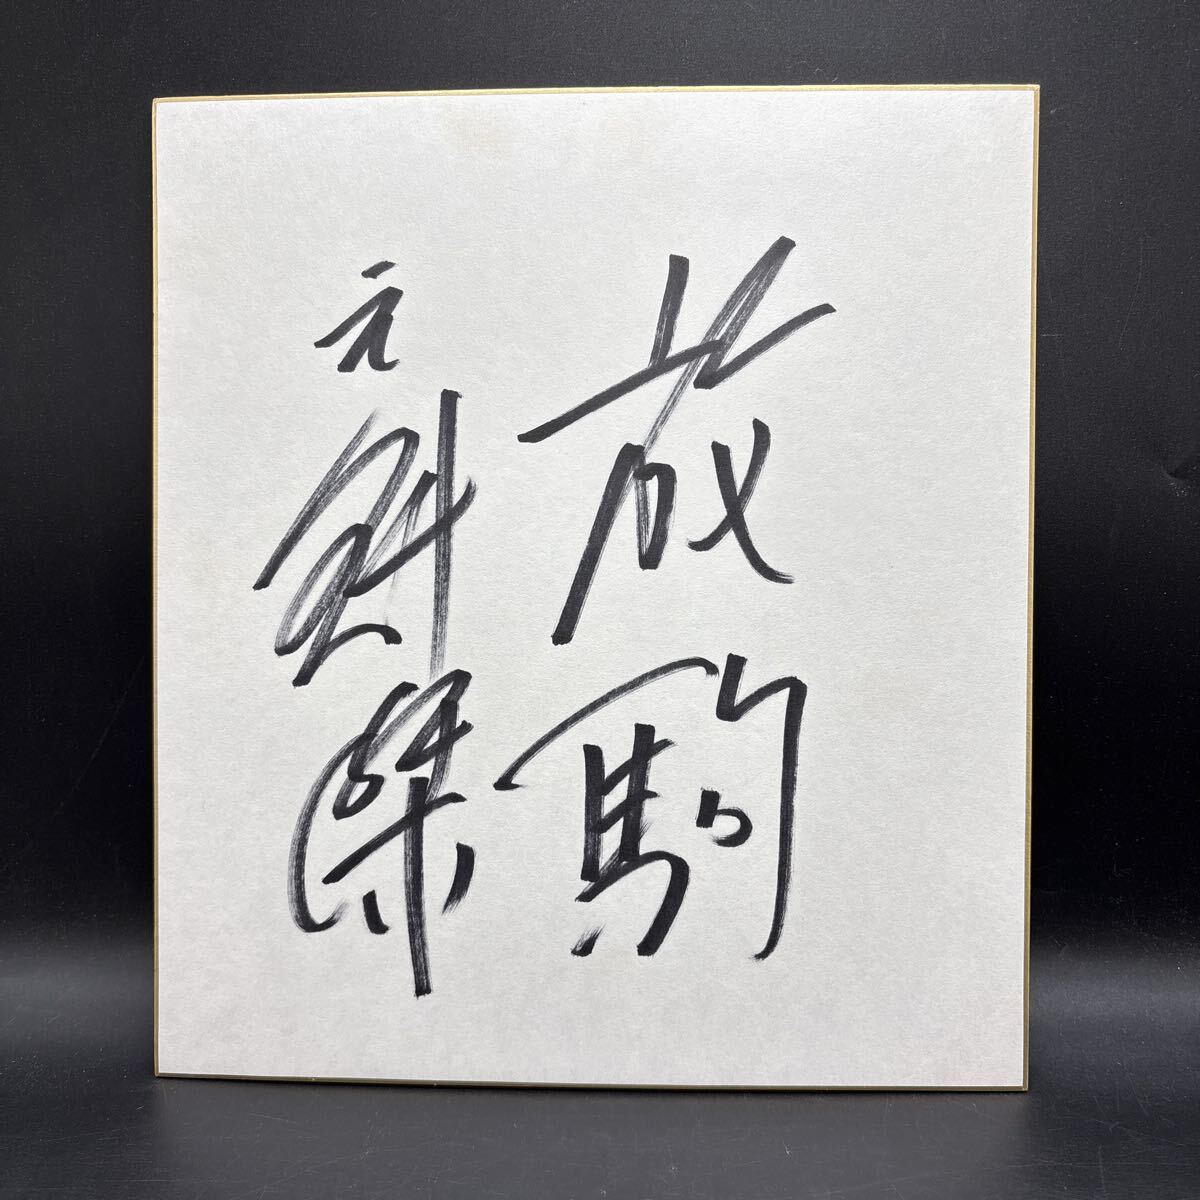 放駒
元魁傑